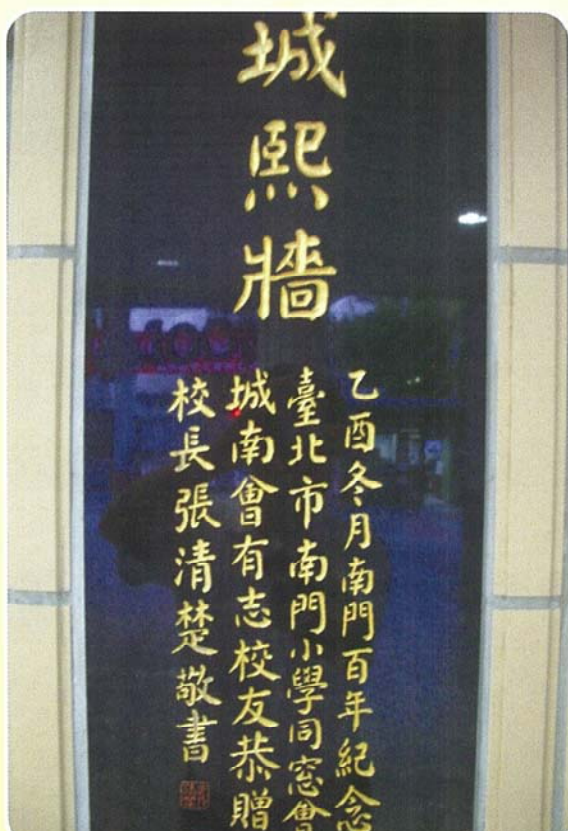 城熙牆
乙酉冬月南門百年紀念
臺北市南門小學同窓會
城南會有志校友恭贈
校長張清楚敬書